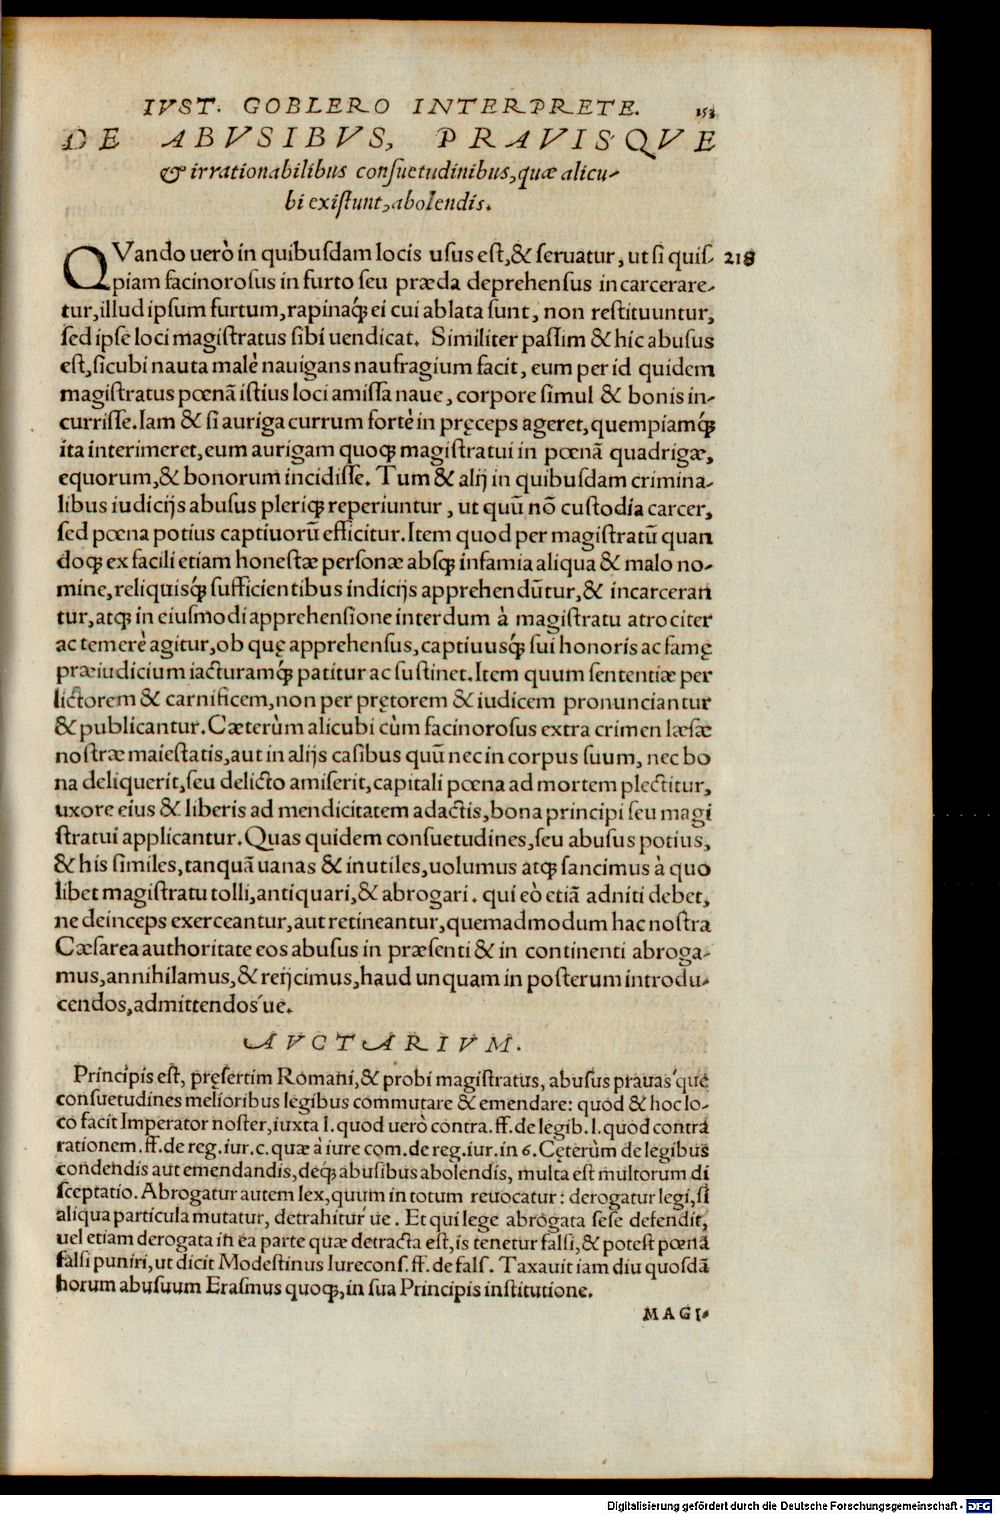 IVST. GOBLERO INTERPRETE. 153
DE ABVSIBVS, PRAVISQVE
& irrationabilibus conſuetudinibus, quæ alicu-
bi exiſtunt, abolendis.
QVando uerò in quibuſdam locis uſus eſt, & ſeruatur, ut ſi quiſ- 218
piam facinoroſus in furto ſeu præda deprehenſus incarcerare-
tur, illud ipſum furtum, rapinaq́; ei cui ablata ſunt, non reſtituuntur,
ſed ipſe loci magiſtratus ſibi uendicat. Similiter paſſim & hic abuſus
eſt, ſicubi nauta malè nauigans naufragium facit, eum per id quidem
magiſtratus pœnã iſtius loci amiſſa naue, corpore ſimul & bonis in-
curriſſe. Iam & ſi auriga currum fortè in pręceps ageret, quempiamq́;
ita interimeret, eum aurigam quoq; magiſtratui in pœnã quadrigæ,
equorum, & bonorum incidiſſe. Tum & alij in quibuſdam crimina-
libus iudicijs abuſus pleriq; reperiuntur, ut quũ nõ cuſtodia carcer,
ſed pœna potius captiuorũ efficitur. Item quod per magiſtratũ quan
doq; ex facili etiam honeſtæ perſonæ abſq; infamia aliqua & malo no-
mine, reliquisq́; ſufficientibus indicijs apprehendũtur, & incarceran
tur, atq; in eiuſmodi apprehenſione interdum à magiſtratu atrociter
ac temerè agitur, ob quę apprehenſus, captiuusq́; ſui honoris ac famę
præiudicium iacturamq́; patitur ac ſuſtinet. Item quum ſententiæ per
lictorem & carnificem, non per prętorem & iudicem pronunciantur
& publicantur. Cæterùm alicubi cùm facinoroſus extra crimen læſæ
noſtræ maieſtatis, aut in alijs caſibus quũ nec in corpus ſuum, nec bo
na deliquerit, ſeu delicto amiſerit, capitali pœna ad mortem plectitur,
uxore eius & liberis ad mendicitatem adactis, bona principi ſeu magi
ſtratui applicantur. Quas quidem conſuetudines, ſeu abuſus potius,
& his ſimiles, tanquã uanas & inutiles, uolumus atq; ſancimus à quo
libet magiſtratu tolli, antiquari, & abrogari. qui eò etiã adniti debet,
ne deinceps exerceantur, aut retineantur, quemadmodum hac noſtra
Cæſarea authoritate eos abuſus in præſenti & in continenti abroga-
mus, annihilamus, & reijcimus, haud unquam in poſterum introdu-
cendos, admittendos'ue.
AVCTARIVM.
Principis eſt, pręſertim Romani, & probi magiſtratus, abuſus prauas'que
conſuetudines melioribus legibus commutare & emendare: quod & hoc lo-
co facit Imperator noſter, iuxta l. quod uerò contra. ff. de legib. l. quod contra
rationem. ff. de reg. iur. c. quæ à iure com. de reg. iur. in 6. Cęterùm de legibus
condendis aut emendandis, deq; abuſibus abolendis, multa eſt multorum di
ſceptatio. Abrogatur autem lex, quum in totum reuocatur: derogatur legi, ſi
aliqua particula mutatur, detrahitur'ue. Et qui lege abrogata ſeſe defendit,
uel etiam derogata in ea parte quæ detracta eſt, is tenetur falſi, & poteſt pœnã
falſi puniri, ut dicit Modeſtinus Iureconſ. ff. de falſ. Taxauit iam diu quoſdã
horum abuſuum Eraſmus quoq;, in ſua Principis inſtitutione.
MAGI-
Digitalisierung gefördert durch die Deutsche Forschungsgemeinschaft - DFG